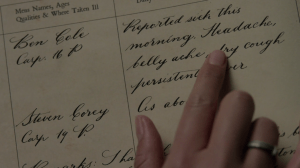 Mens Names, Ages
Qualities & Where Taken Ill
Ben Cole
Corp.
Reported sick this
morning. Headache,
belly ache, dry cough
persistent
Steven Corey
Corp
As abo